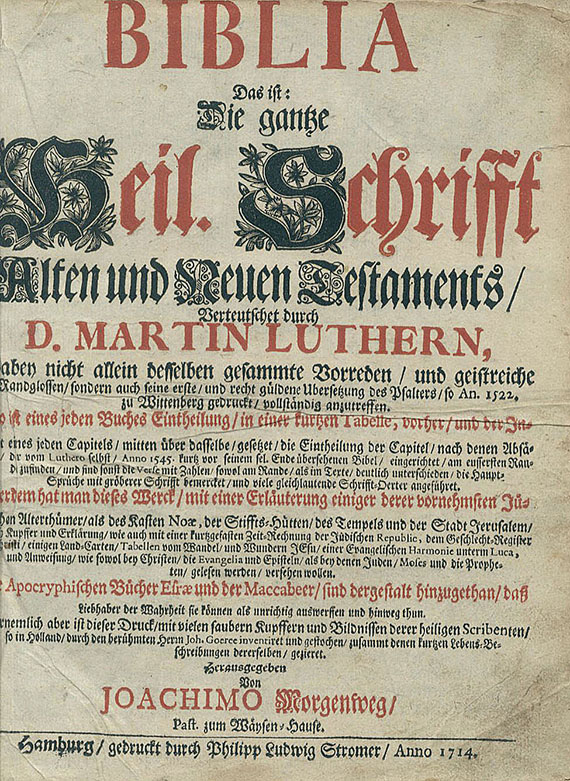 BIBLIA
Das ist:
Die gantze
Heil. Schrifft
Alten und Neuen Testaments/
Verteutschet durch
D. MARTIN LUTHERN,
aben nicht allein desselben gesammte Vorreden / und geistreiche
Randglossen/ sondern auch seine erste/ und recht güldne Übersetzung des Psalters/ so An. 1522.
zu Wittenberg gedruckt/ vollständig anzutreffen.
o ist eines jeden Buches Eintheilung/ in einer kurtzen Tabelle, vorher/ und der In-
t eines jeden Capitels/ mitten über dasselbe/ gesetzet/ die Eintheilung der Capitel/ nach denen Absä-
/ vom Luthero selbst/ Anno 1545. kurtz vor seinem sel. Ende übersehenen Bibel/ eingerichtet/ am eussersten Ran-
zufinden/ und sind sonst die Verse mit Zahlen/ sowol am Rande/ als im Texte/ deutlich unterschieden/ die Haupt-
Sprüche mit gröberer Schrifft bemercket/ und viele gleichlautende Schrifft-Oerter angeführet.
erdem hat man dieses Werck/ mit einer Erläuterung einiger derer vornehmsten Jü-
hen Alterthümer/ als des Kasten Noæ, der Stiffts-Hütten/ des Tempels und der Stadt Jerusalem/
Kupffer und Erklärung/ wie auch mit einer kurtzgefasten Zeit-Rechnung der Jüdischen Republic, dem Geschlecht-Register
risti/ einigen Land-Carten/ Tabellen vom Wandel/ und Wundern JEsu/ einer Evangelischen Harmonie unterm Luca,
und Anweisung/ wie sowol bey Christen/ die Evangelia und Episteln/ als bey denen Juden/ Moses und die Prophe-
ten/ gelesen werden/ versehen wollen.
Apocryphischen Bücher Esræ und der Maccabeer/ sind dergestalt hinzugethan/ daß
Liebhaber der Wahrheit sie können als unrichtig auswerffen und hinweg thun.
rnemlich aber ist dieser Druck/ mit vielen saubern Kupffern und Bildnissen derer heiligen Scribenten/
so in Holland/ durch den berühmten Herrn Joh. Goeree inventiret und gestochen/ zusammt denen kurtzen Lebens-Be-
schreibungen dererselben/ gezieret.
Herausgegeben
Von
JOACHIMO Morgenweg/
Past. zum Wäysen-Hause.
Hamburg/ gedruckt durch Philipp Ludwig Stromer/ Anno 1714.